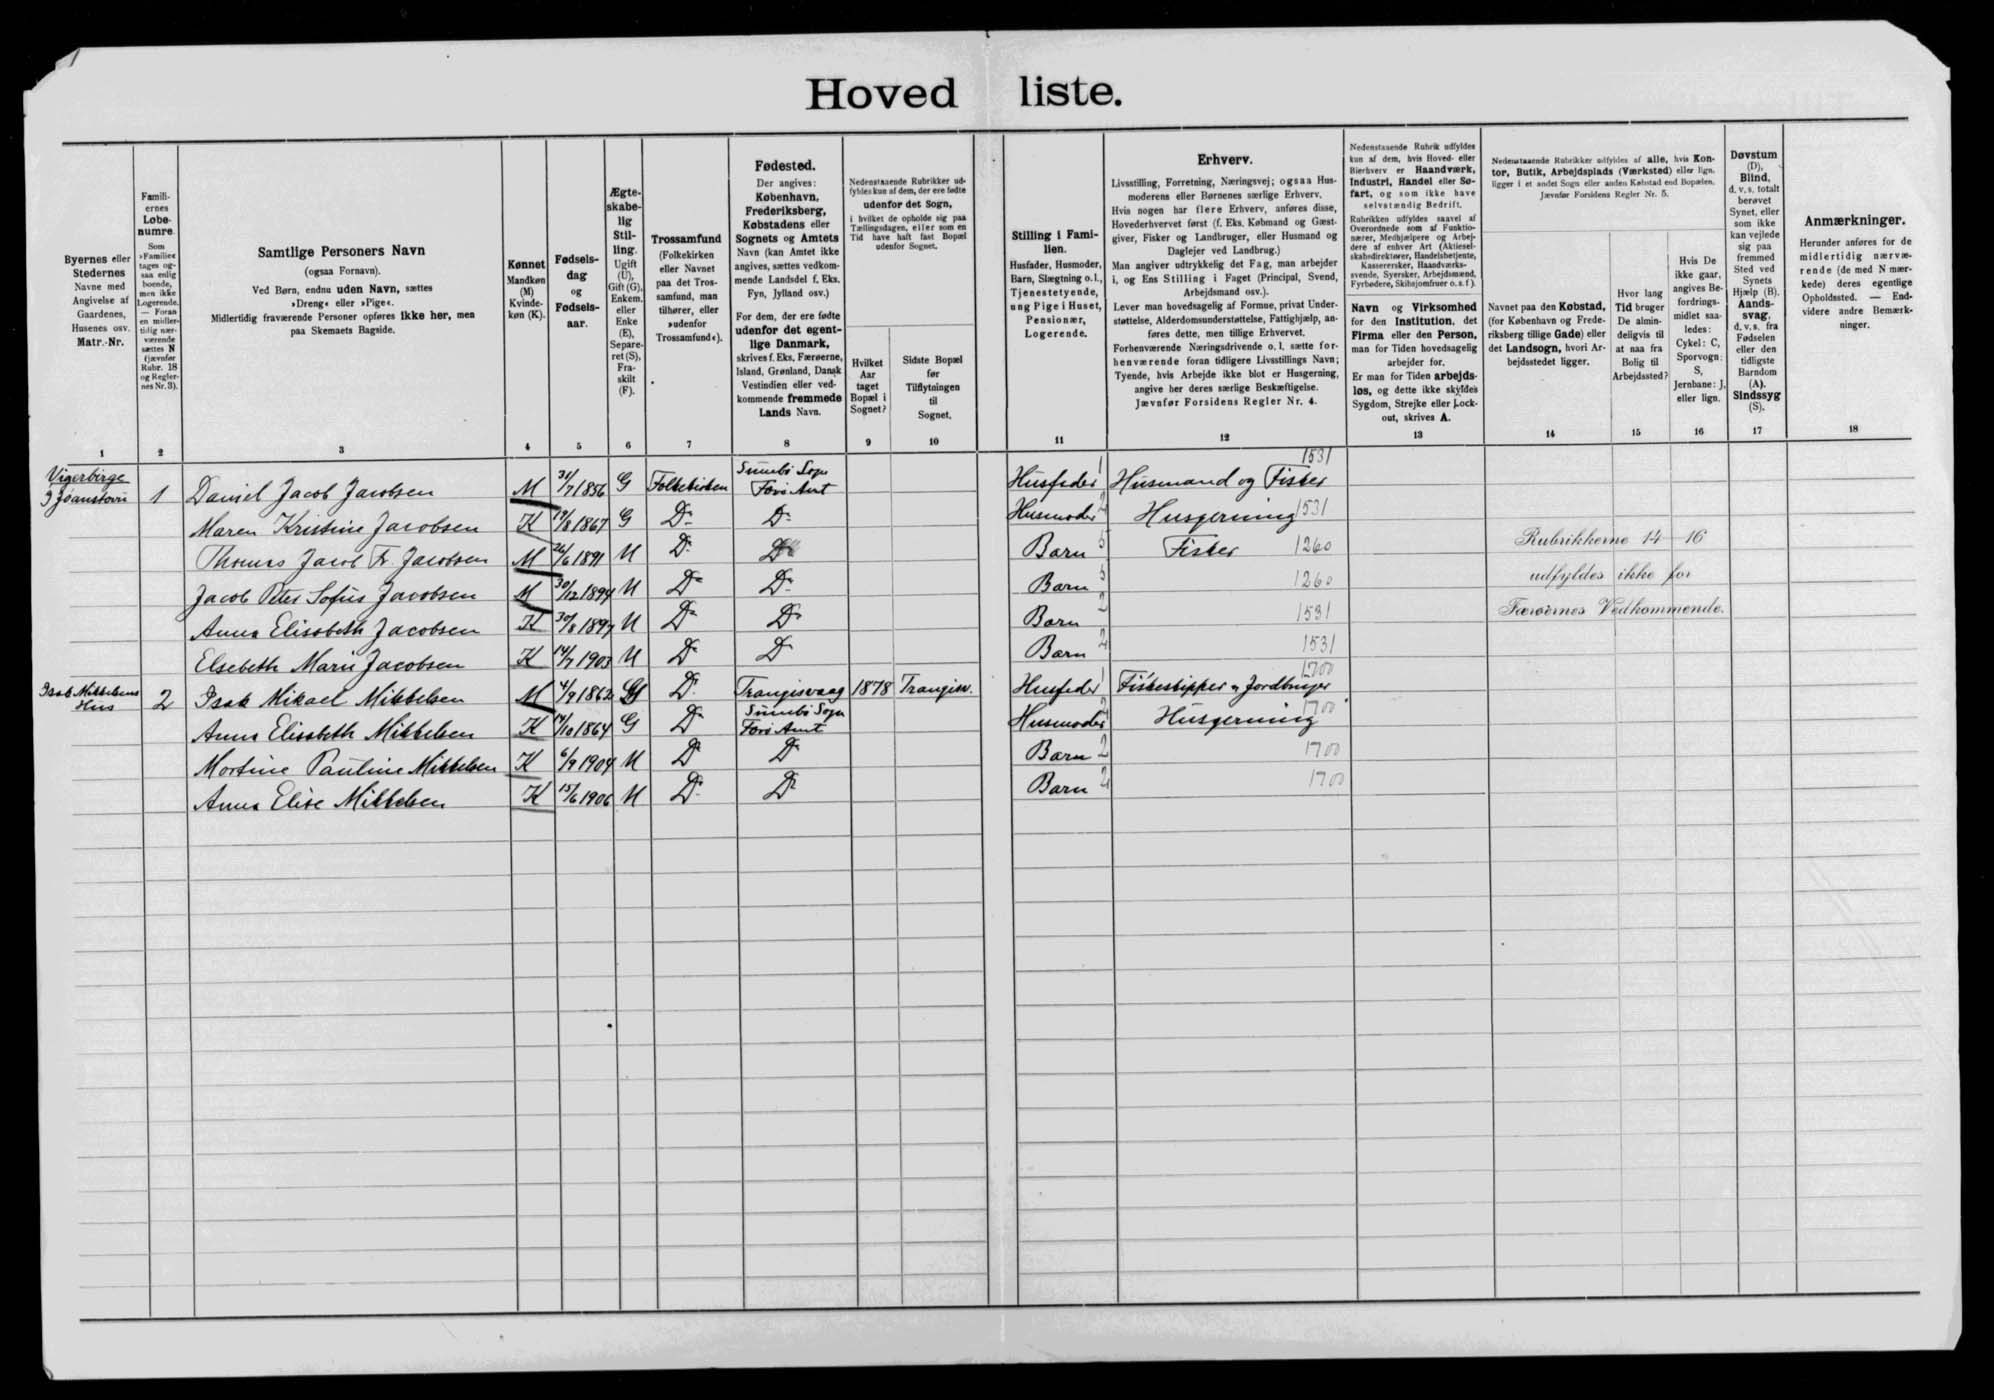 Hoved liste.
Byernes eller
Stedernes
Navne med
Angivelse af
Gaardenes,
Husenes osv.
Matr.-Nr.
1
Famili-
ernes
Løbe-
numre.
Som
»Familie«
tages og-
saa enlig
boende,
men ikke
Logerende.
— Foran
en midler-
tidig nær-
værende
sættes N
(jævnfør
Rubr. 18
og Regler-
nes Nr. 3).
2
Samtlige Personers Navn
(ogsaa Fornavn).
Ved Børn, endnu uden Navn, sættes
»Dreng« eller »Pige«.
Midlertidig fraværende Personer opføres ikke her, men
paa Skemaets Bagside.
3
Kønnet
Mandkøn
(M)
Kvinde-
køn (K).
4
Fødsels-
dag
og
Fødsels-
aar.
5
Ægte-
skabe-
lig
Stil-
ling.
Ugift
(U),
Gift (G),
Enkem.
eller
Enke
(E),
Separe-
ret (S),
Fra-
skilt
(F).
6
Trossamfund
(Folkekirken
eller Navnet
paa det Tros-
samfund, man
tilhører, eller
»udenfor
Trossamfund«).
7
Fødested.
Der angives:
København,
Frederiksberg,
Købstadens eller
Sognets og Amtets
Navn (kan Amtet ikke
angives, sættes vedkom-
mende Landsdel f. Eks.
Fyn, Jylland osv.)
For dem, der ere fødte
udenfor det egent-
lige Danmark,
skrives f. Eks, Færøerne,
Island, Grønland, Dansk
Vestindien eller ved-
kommende fremmede
Lands Navn.
8
Nedenstaaende Rubrikker ud-
fyldes kun af dem, der ere fødte
udenfor det Sogn,
i hvilket de opholde sig paa
Tællingsdagen, eller som en
Tid have haft fast Bopæl
udenfor Sognet.
Hvilket
Aar
taget
Bopæl i
Sognet?
9
Sidste Bopæl
før
Tilflytningen
til
Sognet.
10
Stilling i Fami-
lien.
Husfader, Husmoder,
Barn, Slægtning o. l.,
Tjenestetyende,
ung Pige i Huset,
Pensionær,
Logerende.
11
Erhverv.
Livsstilling, Forretning, Næringsvej; ogsaa Hus-
moderens eller Børnenes særlige Erhverv.
Hvis nogen har flere Erhverv, anføres disse,
Hovederhvervet først (f. Eks. Købmand og Gæst-
giver, Fisker og Landbruger, eller Husmand og
Daglejer ved Landbrug.)
Man angiver udtrykkelig det Fag, man arbejder
i, og Ens Stilling i Faget (Principal, Svend,
Arbejdsmand osv.).
Lever man hovedsagelig af Formue, privat Under-
støttelse, Alderdomsunderstøttelse, Fattighjælp, an-
føres dette, men tillige Erhvervet.
Forhenværende Næringsdrivende o. l. sætte for-
henværende foran tidligere Livsstillings Navn;
Tyende, hvis Arbejde ikke blot er Husgerning,
angive her deres særlige Beskæftigelse.
Jævnfør Forsidens Regler Nr. 4.
12
Nedenstaaende Rubrik udfyldes
kun af dem, hvis Hoved- eller
Bierhverv er Haandværk,
Industri, Handel eller Sø-
fart, og som ikke have
selvstændig Bedrift.
Rubrikken udfyldes saavel af
Overordnede som af Funktio-
nærer, Medhjælpere og Arbej-
dere af enhver Art (Aktiesel-
skabsdirektører, Handelsbetjente,
Kasserersker, Haandværks-
svende, Syersker, Arbejdsmænd,
Fyrbødere, Skibsjomfruer o. s. f.).
Navn og Virksomhed
for den Institution, det
Firma eller den Person,
man for Tiden hovedsagelig
arbejder for.
Er man for Tiden arbejds-
løs, og dette ikke skyldes
Sygdom, Strejke eller Lock-
out, skrives A.
13
Nedenstaaende Rubrikker udfyldes af alle, hvis Kon-
tor, Butik, Arbejdsplads (Værksted) eller lign.
ligger i et andet Sogn eller anden Købstad end Bopælen.
Jævnfør Forsidens Regler Nr. 5.
Navnet paa den Købstad,
(for København og Frede-
riksberg tillige Gade) eller
det Landsogn, hvori Ar-
bejdsstedet ligger.
14
Hvor lang
Tid bruger
De almin-
deligvis til
at naa fra
Bolig til
Arbejdssted?
15
Hvis De
ikke gaar,
angives Be-
fordrings-
midlet saa-
ledes:
Cykel: C,
Sporvogn:
S,
Jernbane: J,
eller lign.
16
Døvstum
(D),
Blind,
d. v. s. totalt
berøvet
Synet, eller
som ikke
kan vejlede
sig paa
fremmed
Sted ved
Synets
Hjælp (B).
Aands-
svag,
d. v. s. fra
Fødselen
eller den
tidligste
Barndom
(A).
Sindssyg
(S).
17
Anmærkninger.
Herunder anføres for de
midlertidig nærvæ-
rende (de med N mær-
kede) deres egentlige
Opholdssted. — End-
videre andre Bemærk-
ninger.
18
Vigerbirge Sumbö Sogn 1531
1 Daniel Jacob Jacobsen M 31/7 1856 G Folkekirken Færö Amt Husfader 1 Husmand og Fisker
Maren Kristine Jacobsen K 19/8 1867 G Do Do Husmoder 2 Husgerning 1531
Thomas Jacob Fr. Jacobsen M 26/6 1891 U Do Do Barn 5 Fisker 1260
Jacob Peter Sofus Jacobsen M 30/12 1894 U Do Do Barn 5 1260
Anna Elisabeth Jacobsen K 30/8 1897 U Do Do Barn 2 1531
Elsebeth Marie Jacobsen K 14/7 1903 U Do Do Barn 2 1531
Rubrikkerne 14 - 16
udfyldes ikke for
Færøernes Vedkommende.
Isak Mikkelsens Hus 2 Isak Mikael Mikkelsen M 4/9 1862 G Do Trangisvaag 1878 Trangisv. Husfader 1 Fiskeskipper og Jordbruger 1700
Anna Elisabeth Mikkelsen K 14/10 1864 G Do Sumbö Sogn Færö Amt Husmoder 2 Husgerning 1700
Mortine Pauline Mikkelsen K 6/9 1904 U Do Do Barn 2 1700
Anna Elise Mikkelsen K 15/6 1906 U Do Do Barn 2 1700